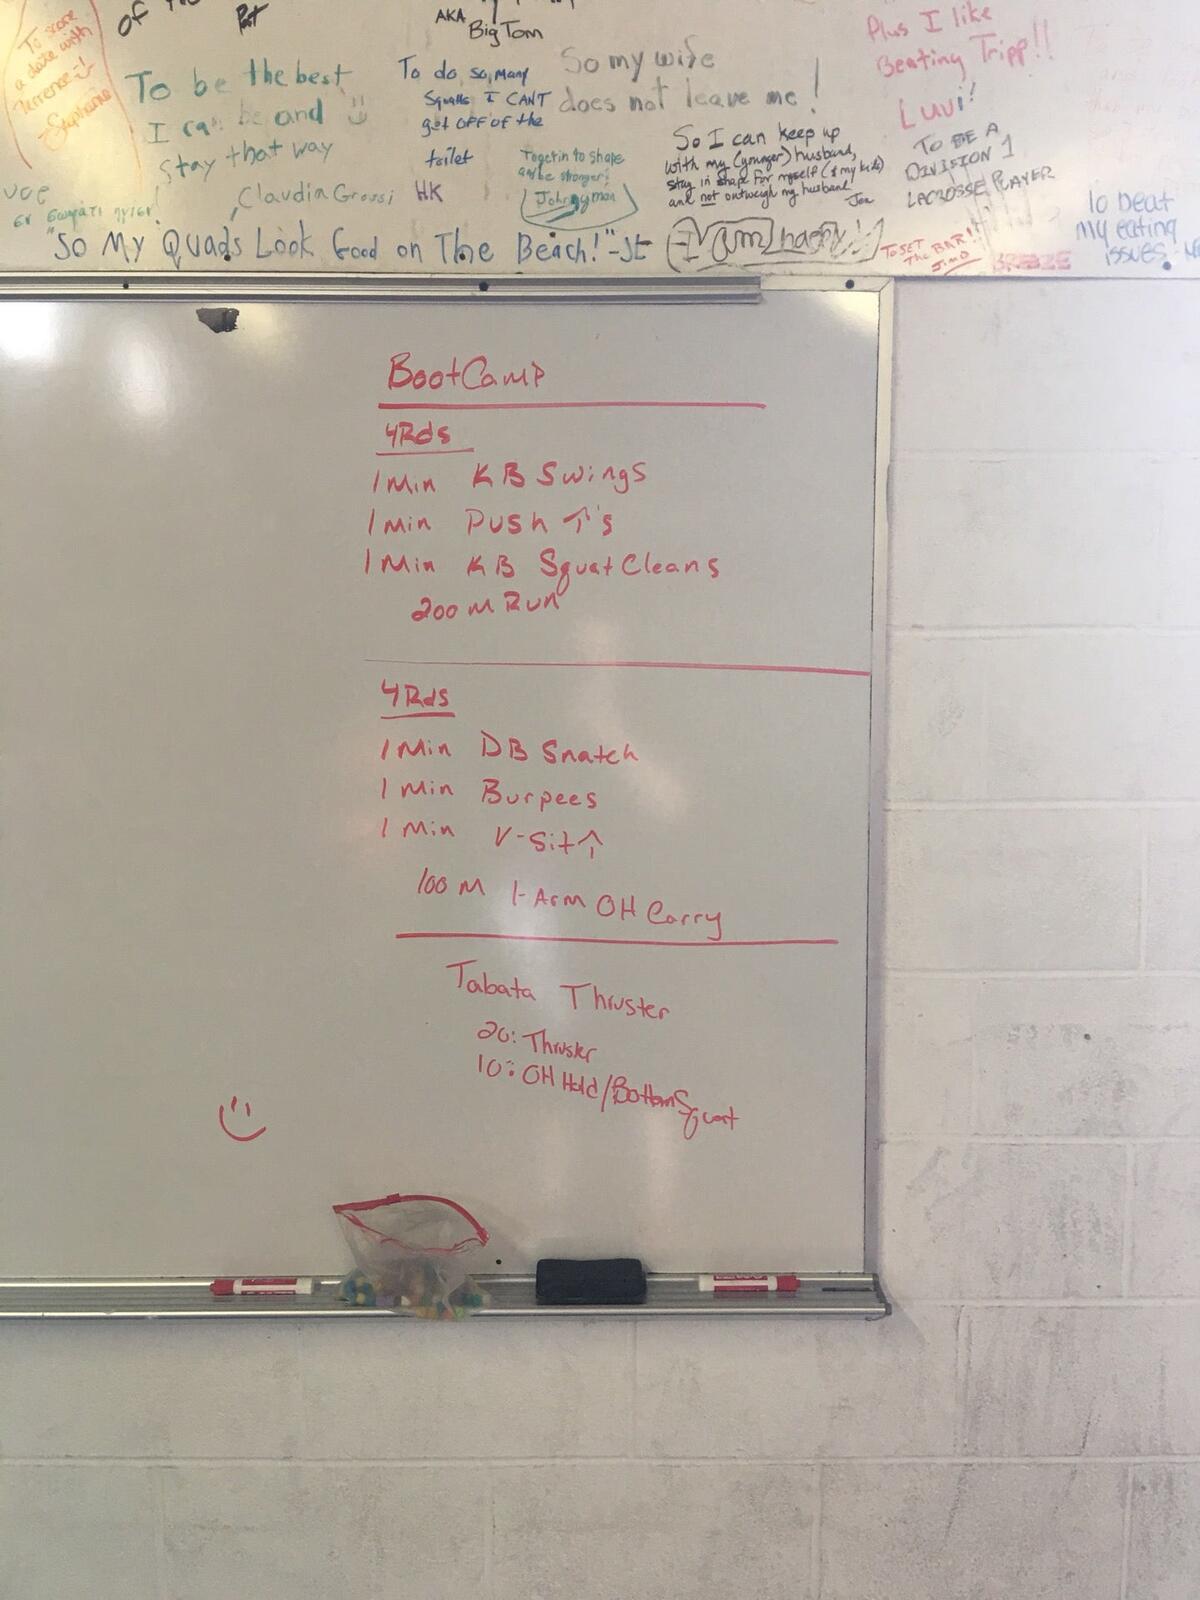 To score
a date with
Terrence :)
-Stephanie
of
AKA
Big Tom
To be the best
I can be and
stay that way
Claudia Grossi
To do so many
squats I CANT
get OFF of the
toilet
HK
So my wife
does not leave me!
To get in to shape
and be stronger!
Johnnyman
So I can keep up
with my (younger) husband,
stay in shape for myself (& my kids)
and not outweigh my husband
Jen
Plus I like
Beating Tripp!!
Luvi!
TO BE A
DIVISION 1
LACROSSE PLAYER
"So My Quads Look Good on The Beach!"-JE
To SET
The BAR!!
JimD
BREEZE
To beat
my eating
issues!
BootCamp
4Rds
1 Min KB Swings
1 Min Push ↑'s
1 Min KB Squat Cleans
200 M Run
4Rds
1 Min DB Snatch
1 Min Burpees
1 Min V-Sit↑
100 M 1-Arm OH Carry
Tabata Thruster
20: Thruster
10: OH Hold/Bottom Squat